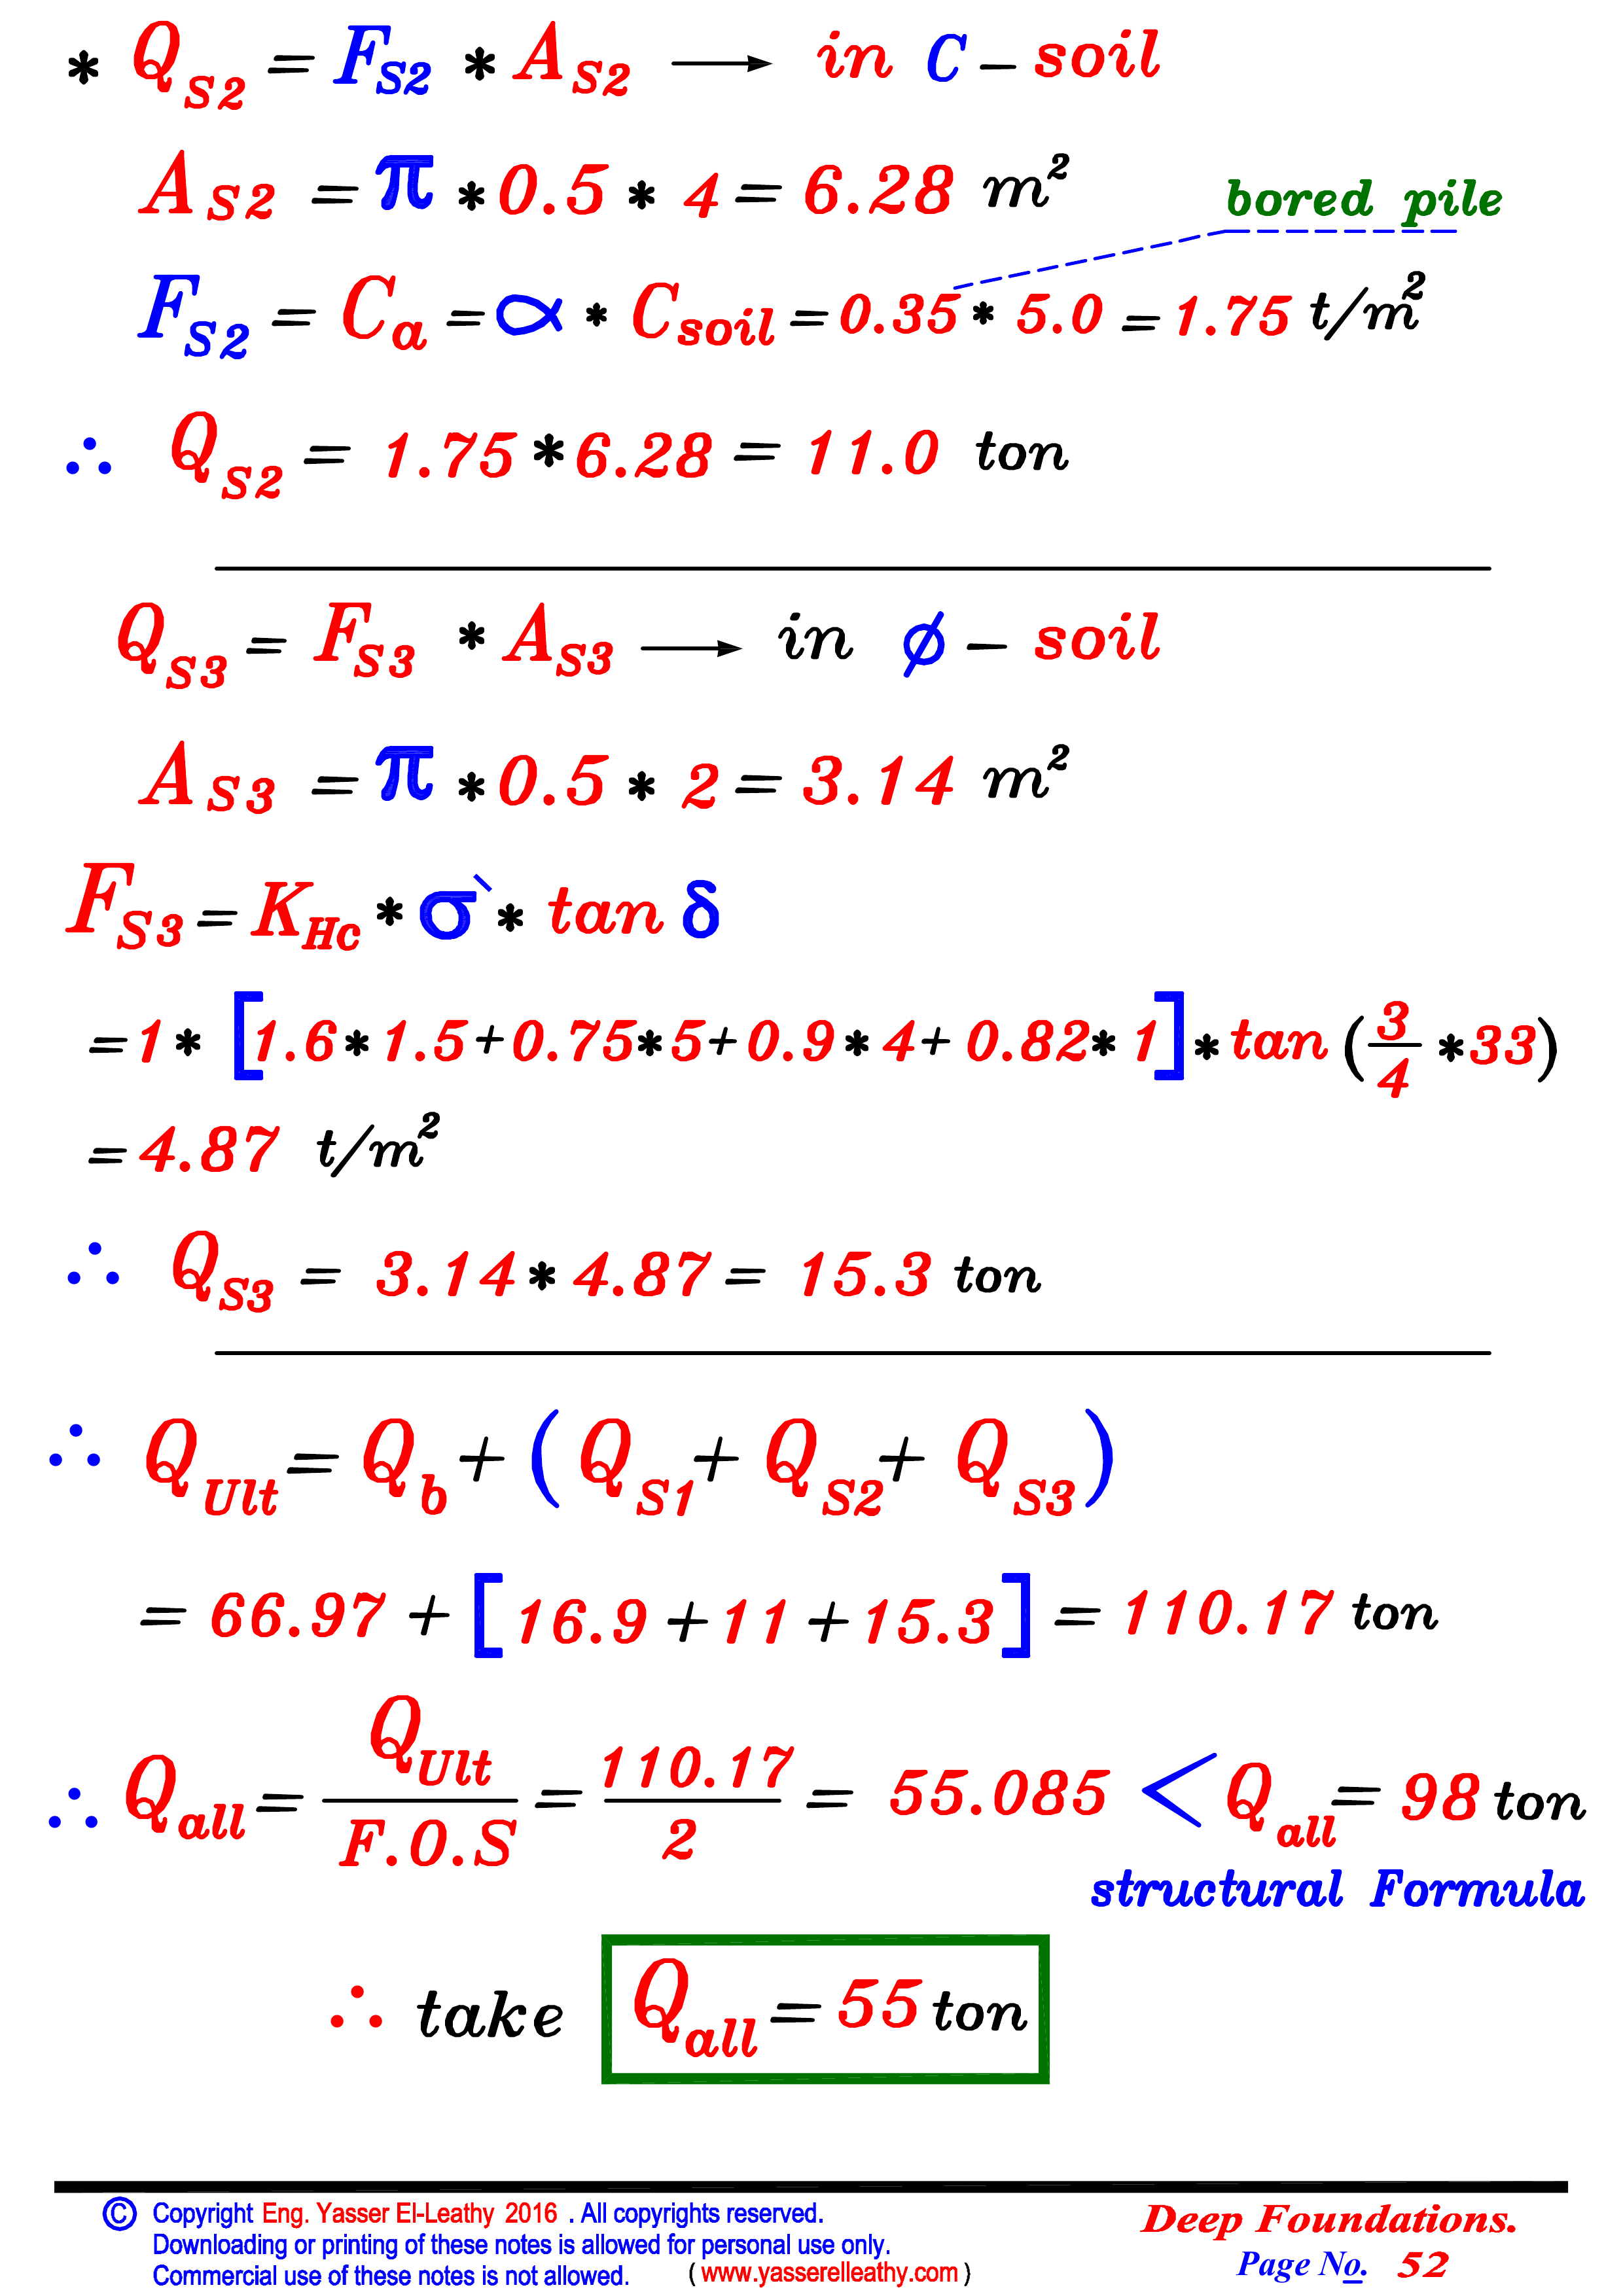 * Q S2 = F S2 * A S2 → in C - soil
A S2 = π * 0.5 * 4 = 6.28 m²
bored pile
F S2 = C a = α * C soil = 0.35 * 5.0 = 1.75 t/m²
∴ Q S2 = 1.75 * 6.28 = 11.0 ton
Q S3 = F S3 * A S3 → in ϕ - soil
A S3 = π * 0.5 * 2 = 3.14 m²
F S3 = K Hc * σ` * tan δ
= 1 * [1.6 * 1.5 + 0.75 * 5 + 0.9 * 4 + 0.82 * 1] * tan (3/4 * 33)
= 4.87 t/m²
∴ Q S3 = 3.14 * 4.87 = 15.3 ton
∴ Q Ult = Q b + (Q S1 + Q S2 + Q S3)
= 66.97 + [16.9 + 11 + 15.3] = 110.17 ton
∴ Q all = Q Ult / F.O.S = 110.17 / 2 = 55.085 < Q all = 98 ton
structural Formula
∴ take Q all = 55 ton
© Copyright Eng. Yasser El-Leathy 2016 . All copyrights reserved.
Downloading or printing of these notes is allowed for personal use only.
Commercial use of these notes is not allowed. ( www.yasserelleathy.com )
Deep Foundations.
Page No. 52